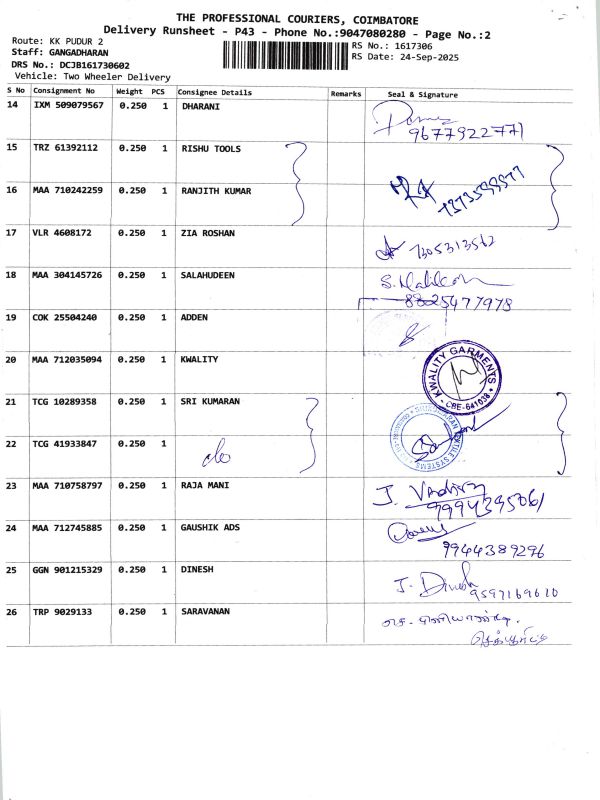 THE PROFESSIONAL COURIERS, COIMBATORE
Delivery Runsheet - P43 - Phone No.:9047080280 - Page No.:2
Route: KK PUDUR 2
RS No.: 1617306
Staff: GANGADHARAN
RS Date: 24-Sep-2025
DRS No.: DCJB161730602
Vehicle: Two Wheeler Delivery
S No Consignment No Weight PCS Consignee Details Remarks Seal & Signature
14 IXM 509079567 0.250 1 DHARANI
9677922771
15 TRZ 61392112 0.250 1 RISHU TOOLS
16 MAA 710242259 0.250 1 RANJITH KUMAR
17 VLR 4608172 0.250 1 ZIA ROSHAN
7305313562
18 MAA 304145726 0.250 1 SALAHUDEEN
8825477978
19 COK 25504240 0.250 1 ADDEN
20 MAA 712035094 0.250 1 KWALITY
KWALITY GARMENTS
CBE-641038
21 TCG 10289358 0.250 1 SRI KUMARAN
22 TCG 41933847 0.250 1
23 MAA 710758797 0.250 1 RAJA MANI
9994395061
24 MAA 712745885 0.250 1 GAUSHIK ADS
9944389296
25 GGN 901215329 0.250 1 DINESH
J. Dinesh
9597169610
26 TRP 9029133 0.250 1 SARAVANAN